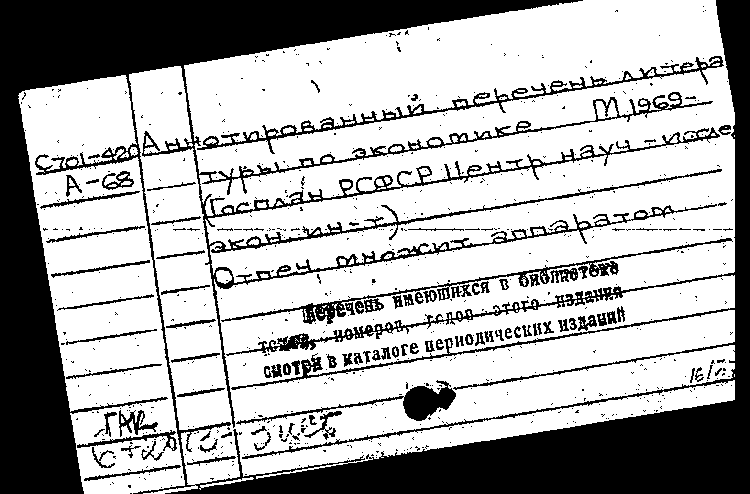 С701-420 Аннотированный перечень литера
А-68 туры по экономике М, 1969-
(Госплан РСФСР Центр науч-исслед
экон. ин-т)
Отпеч. множит аппаратом
Перечень имеющихся в библиотеке
томов, номеров, годов этого издания
смотри в каталоге периодических изданий
16/
ГАК